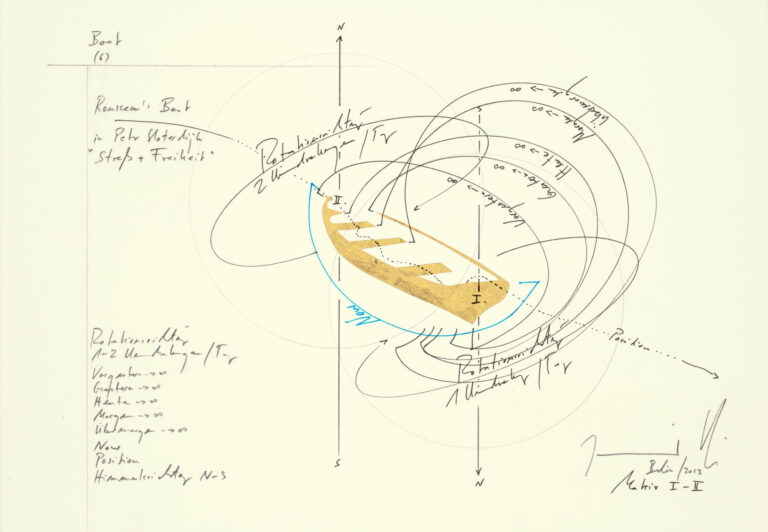 Boot
(6)
Rousseau's Boot
in Peter Sloterdijk
"Streß + Freiheit"
N
Rotationsrichtung
2 Umdrehungen / Tag
II.
S
Übermorgen -> ∞
Morgen -> ∞
Heute -> ∞
Gestern -> ∞
Vorgestern -> ∞
I.
Now
Position
Rotationsrichtung
1 Umdrehung / Tag
S
N
Rotationsrichtung
1-2 Umdrehungen / Tag
Vorgestern -> ∞
Gestern -> ∞
Heute -> ∞
Morgen -> ∞
Übermorgen -> ∞
Now
Position
Himmelsrichtung N-S
Berlin / 2013
Matrix I-II